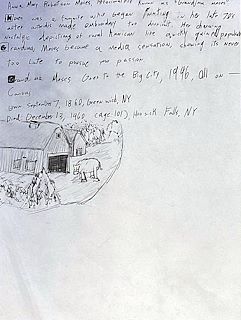 Anna Mary Robertson Moses, affectionately known as "Grandma Moses"
Moses was a fragile who began painting in he late 70s
after made embroidery too difficult. Her charming
nostalgic depictions of rural American life quickly gained popularity
Grandma Moses became a media sensation, showing its never
too late to pursue you passion
Grandma Moses Goes to the Big City, 1946, Oil on
Canvas
Born September 7, 1860, Greenwich, NY
Died: December 13, 1960, (age 101), Hoosick Falls, NY